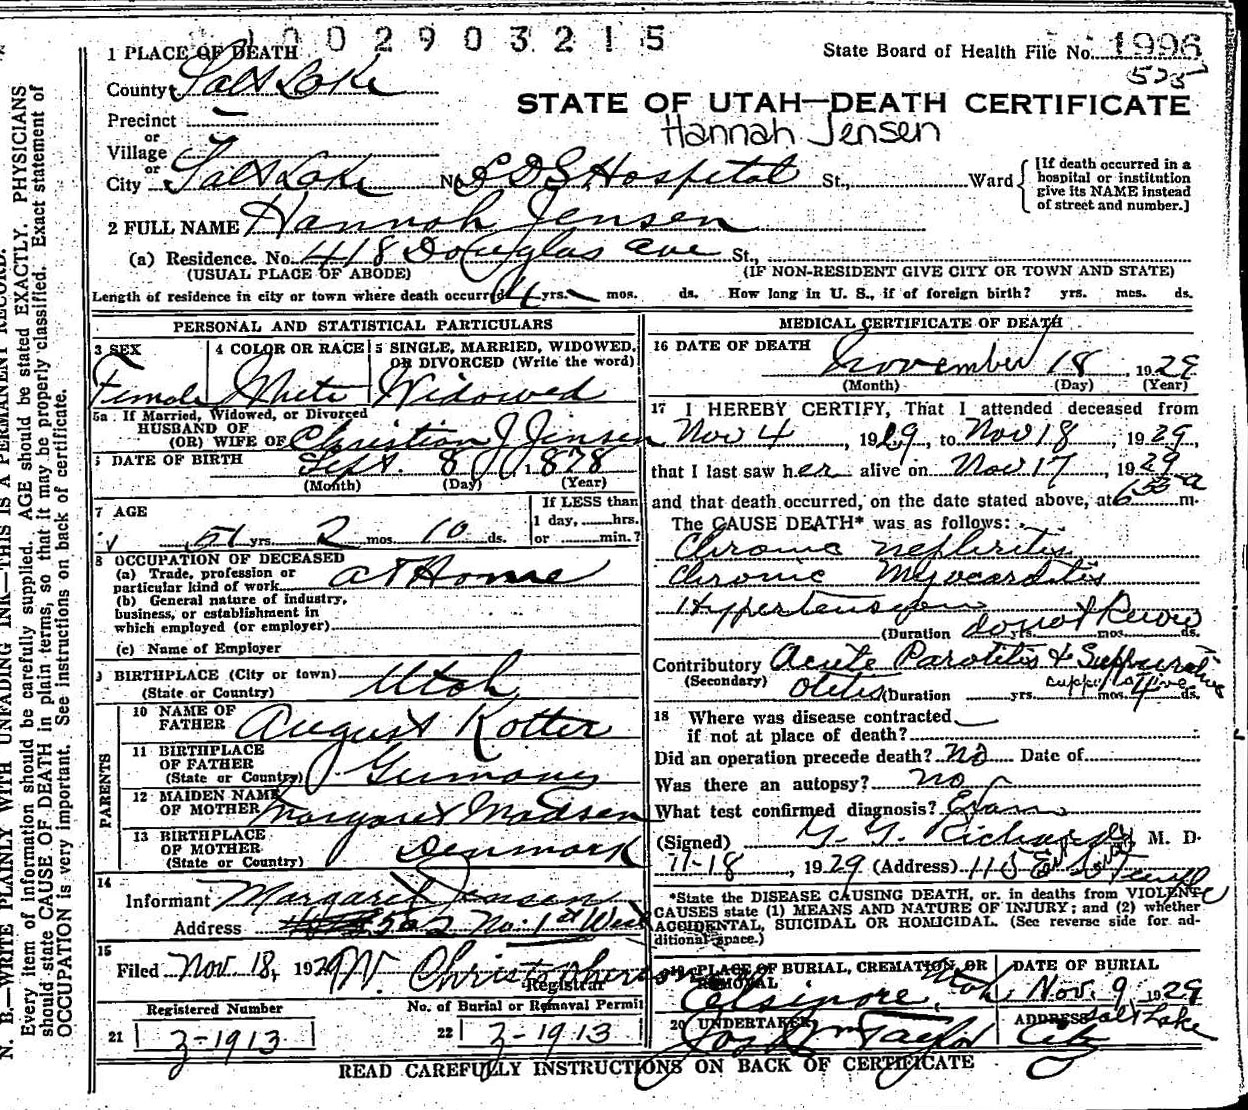 1002903215
1 PLACE OF DEATH
State Board of Health File No. 1996
525
County Salt Lake
STATE OF UTAH—DEATH CERTIFICATE
Hannah Jensen
Precinct
or
Village
or
City Salt Lake No. LDS Hospital St., Ward
[If death occurred in a
hospital or institution
give its NAME instead
of street and number.]
2 FULL NAME Hannah Jensen
(a) Residence. No. 418 Douglas Ave St.,
(USUAL PLACE OF ABODE) (IF NON-RESIDENT GIVE CITY OR TOWN AND STATE)
Length of residence in city or town where death occurred 4 yrs. mos. ds. How long in U. S., if of foreign birth? yrs. mos. ds.
PERSONAL AND STATISTICAL PARTICULARS
3 SEX
Female
4 COLOR OR RACE
White
5 SINGLE, MARRIED, WIDOWED,
OR DIVORCED (Write the word)
Widowed
5a If Married, Widowed, or Divorced
HUSBAND OF
(OR) WIFE OF Christian J Jensen
6 DATE OF BIRTH Sept. 8 1878
(Month) (Day) (Year)
7 AGE
51 yrs. 2 mos. 10 ds.
If LESS than
1 day, hrs.
or min.?
8 OCCUPATION OF DECEASED
(a) Trade, profession or
particular kind of work At Home
(b) General nature of industry,
business, or establishment in
which employed (or employer)
(c) Name of Employer
9 BIRTHPLACE (City or town)
(State or Country) Utah
PARENTS
10 NAME OF
FATHER August Kotter
11 BIRTHPLACE
OF FATHER
(State or Country) Germany
12 MAIDEN NAME
OF MOTHER Margaret Madsen
13 BIRTHPLACE
OF MOTHER
(State or Country) Denmark
14
Informant Margaret Jensen
Address 562 No. 1st West
15
Filed Nov. 18, 1929 W. Christopherson
Registrar
Registered Number
21 3-1913
No. of Burial or Removal Permit
22 3-1913
MEDICAL CERTIFICATE OF DEATH
16 DATE OF DEATH
November 18, 1929
(Month) (Day) (Year)
17 I HEREBY CERTIFY, That I attended deceased from
Nov 4, 1929, to Nov 18, 1929,
that I last saw her alive on Nov 17, 1929
and that death occurred, on the date stated above, at 6 55 a m.
The CAUSE DEATH* was as follows:
Chronic nephritis
Chronic Myocarditis
Hypertension
(Duration do not know yrs. mos. ds.
Contributory Acute Parotitis & Suppurative
(Secondary) suppurative
otitis (Duration yrs. mos. 4 ds.
18 Where was disease contracted
if not at place of death?
Did an operation precede death? No Date of
Was there an autopsy? no
What test confirmed diagnosis? Exam
(Signed) G. G. Richards M. D.
11-18, 1929 (Address) 115 E. So Temple
*State the DISEASE CAUSING DEATH, or, in deaths from VIOLENT
CAUSES state (1) MEANS AND NATURE OF INJURY; and (2) whether
ACCIDENTAL, SUICIDAL OR HOMICIDAL. (See reverse side for ad-
ditional space.)
19 PLACE OF BURIAL, CREMATION, OR
REMOVAL
Elsinore, Utah
DATE OF BURIAL
Nov. 9, 1929
20 UNDERTAKER
Jos Wm Taylor
ADDRESS Salt Lake
City
READ CAREFULLY INSTRUCTIONS ON BACK OF CERTIFICATE
N. B.—WRITE PLAINLY WITH UNFADING INK—THIS IS A PERMANENT RECORD.
Every item of information should be carefully supplied. AGE should be stated EXACTLY. PHYSICIANS
should state CAUSE OF DEATH in plain terms, so that it may be properly classified. Exact statement of
OCCUPATION is very important. See instructions on back of certificate.